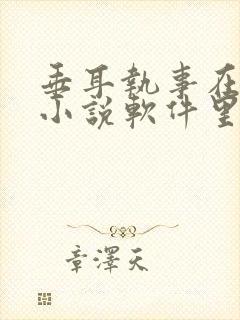 垂耳執事在
小說軟件里
章澤天